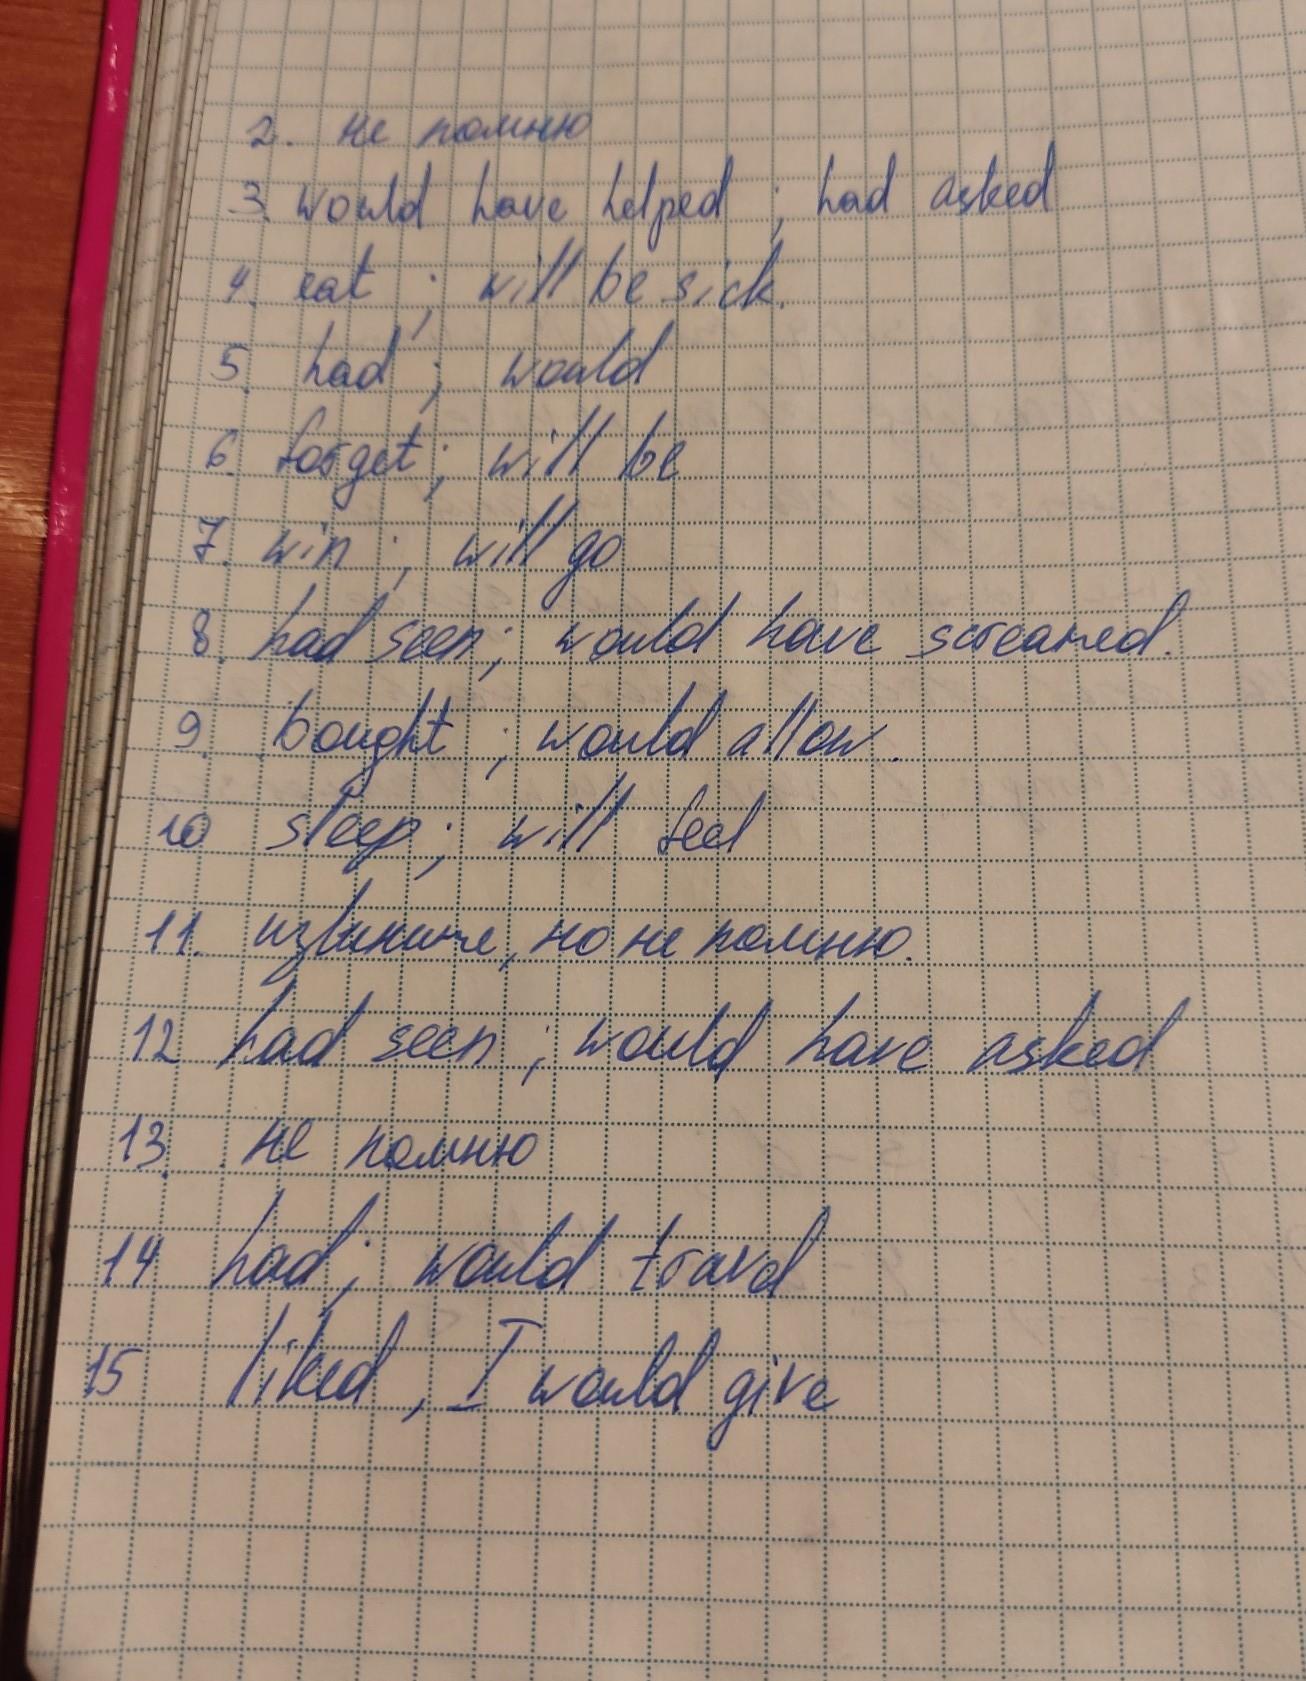 2. не помню
3. would have helped ; had asked
4. eat ; will be sick.
5. had ; would
6. forget ; will be
7. win ; will go
8. had seen ; would have screamed.
9. bought ; would allow.
10 sleep ; will feel
11. извините, но не помню.
12 had seen ; would have asked
13. не помню
14 had ; would travel
15 liked , I would give